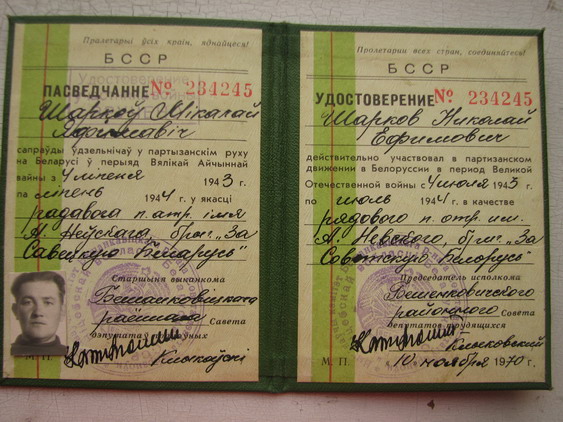 Пралетарыі ўсіх краін, яднайцеся!
БССР
ПАСВЕДЧАННЕ № 234245
Шаркоў Мікалай
Яфімавіч
сапраўды ўдзельнічаў у партызанскім руху
на Беларусі ў перыяд Вялікай Айчыннай
вайны з 4 ліпеня 1943 г.
па ліпень 1944 г. у якасці
радавога п. атр. імя
А. Неўскага, брыг. „За
Савецкую Беларусь"
Старшыня выканкома
Бешанковіцкага
раённага Савета
дэпутатаў
М. П.
Пролетарии всех стран, соединяйтесь!
БССР
УДОСТОВЕРЕНИЕ № 234245
Шарков Николай
Ефимович
действительно участвовал в партизанском
движении в Белоруссии в период Великой
Отечественной войны с 4 июля 1943 г.
по июль 1944 г. в качестве
рядового п. отр. им.
А. Невского, бриг. „За
Советскую Белорусь"
Председатель исполкома
Бешенковичского
районного Совета
депутатов трудящихся
М. П. 10 ноября 1970 г.